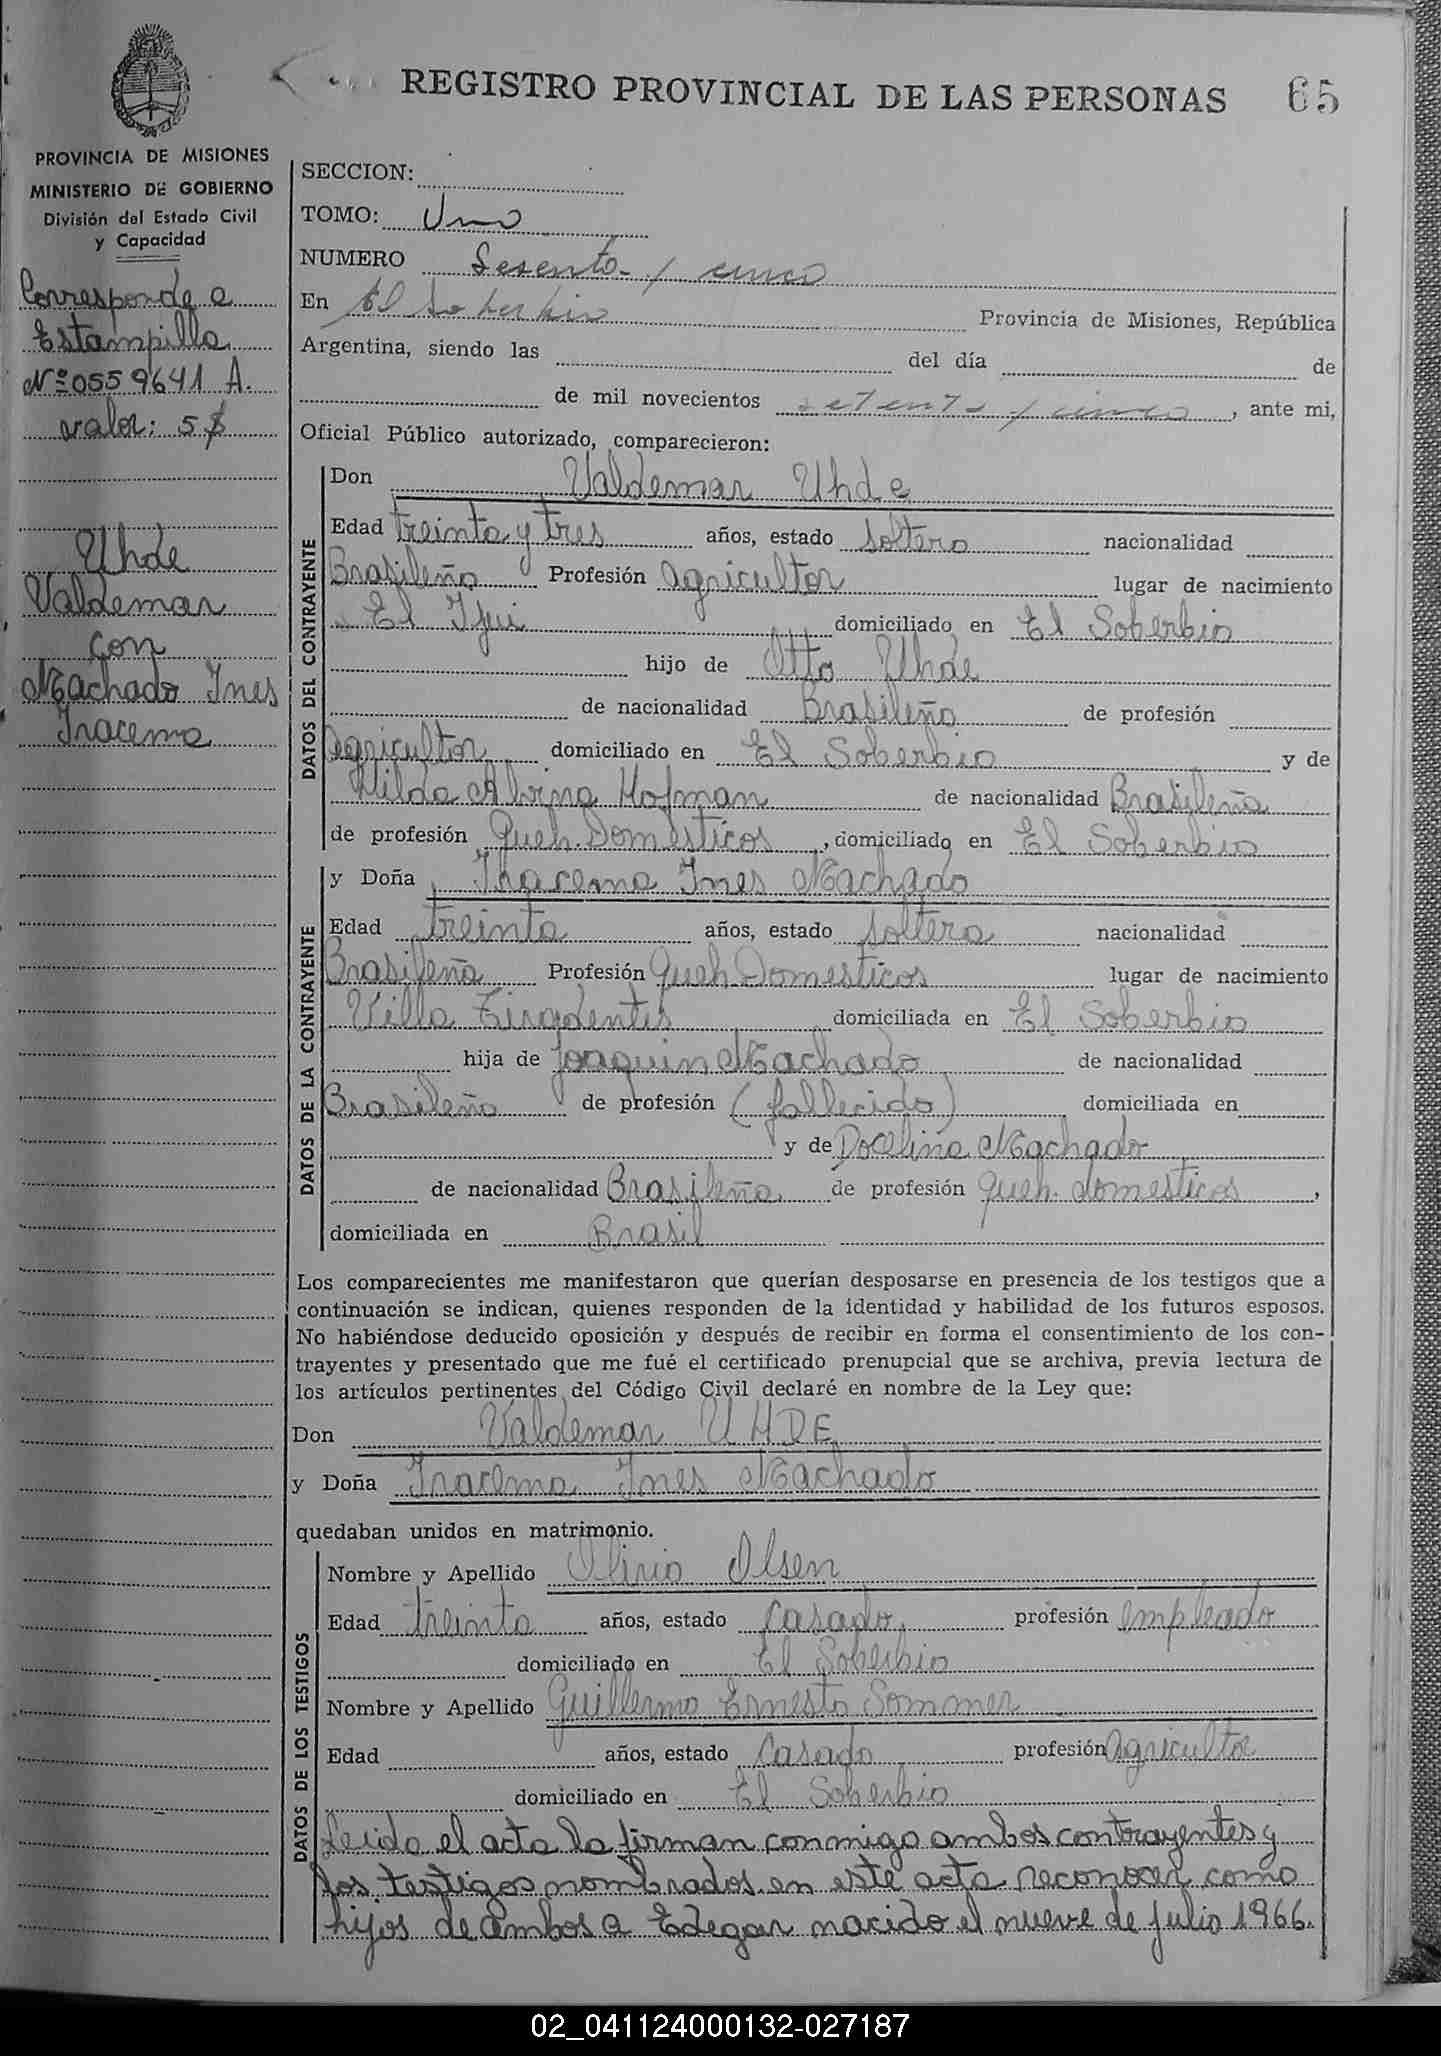 REGISTRO PROVINCIAL DE LAS PERSONAS 65
PROVINCIA DE MISIONES
MINISTERIO DE GOBIERNO
División del Estado Civil
y Capacidad
Corresponde a
Estampilla
Nº 0559641 A.
valor: 5 $
Uhde
Valdemar
con
Machado Ines
Iracema
SECCION:
TOMO: Uno
NUMERO Sesenta y cinco
En El Soberbio Provincia de Misiones, República
Argentina, siendo las del día de
de mil novecientos setenta y cinco, ante mi,
Oficial Público autorizado, comparecieron:
DATOS DEL CONTRAYENTE
Don Valdemar Uhde
Edad treinta y tres años, estado soltero nacionalidad
Brasileño Profesión Agricultor lugar de nacimiento
El Ijui domiciliado en El Soberbio
hijo de Otto Uhde
de nacionalidad Brasileño de profesión
Agricultor domiciliado en El Soberbio y de
Hilda Albina Hofman de nacionalidad Brasileña
de profesión Queh. Domesticos, domiciliado en El Soberbio
DATOS DE LA CONTRAYENTE
y Doña Iracema Ines Machado
Edad treinta años, estado soltera nacionalidad
Brasileña Profesión Queh Domesticos lugar de nacimiento
Villa Tiradentes domiciliada en El Soberbio
hija de Joaquin Machado de nacionalidad
Brasileño de profesión (fallecido) domiciliada en
y de Docelina Machado
de nacionalidad Brasileña de profesión queh. domesticos,
domiciliada en Brasil
Los comparecientes me manifestaron que querían desposarse en presencia de los testigos que a
continuación se indican, quienes responden de la identidad y habilidad de los futuros esposos.
No habiéndose deducido oposición y después de recibir en forma el consentimiento de los con-
trayentes y presentado que me fué el certificado prenupcial que se archiva, previa lectura de
los artículos pertinentes del Código Civil declaré en nombre de la Ley que:
Don Valdemar UHDE
y Doña Iracema Ines Machado
quedaban unidos en matrimonio.
DATOS DE LOS TESTIGOS
Nombre y Apellido Olirio Olsen
Edad treinta años, estado Casado, profesión empleado
domiciliado en El Soberbio
Nombre y Apellido Guillermo Ernesto Sommer
Edad años, estado Casado profesión Agricultor
domiciliado en El Soberbio
Leida el acta la firman conmigo ambos contrayentes y
los testigos nombrados en este acta reconocen como
hijos de ambos a Edegar nacido el nueve de julio 1966.
02_041124000132-027187